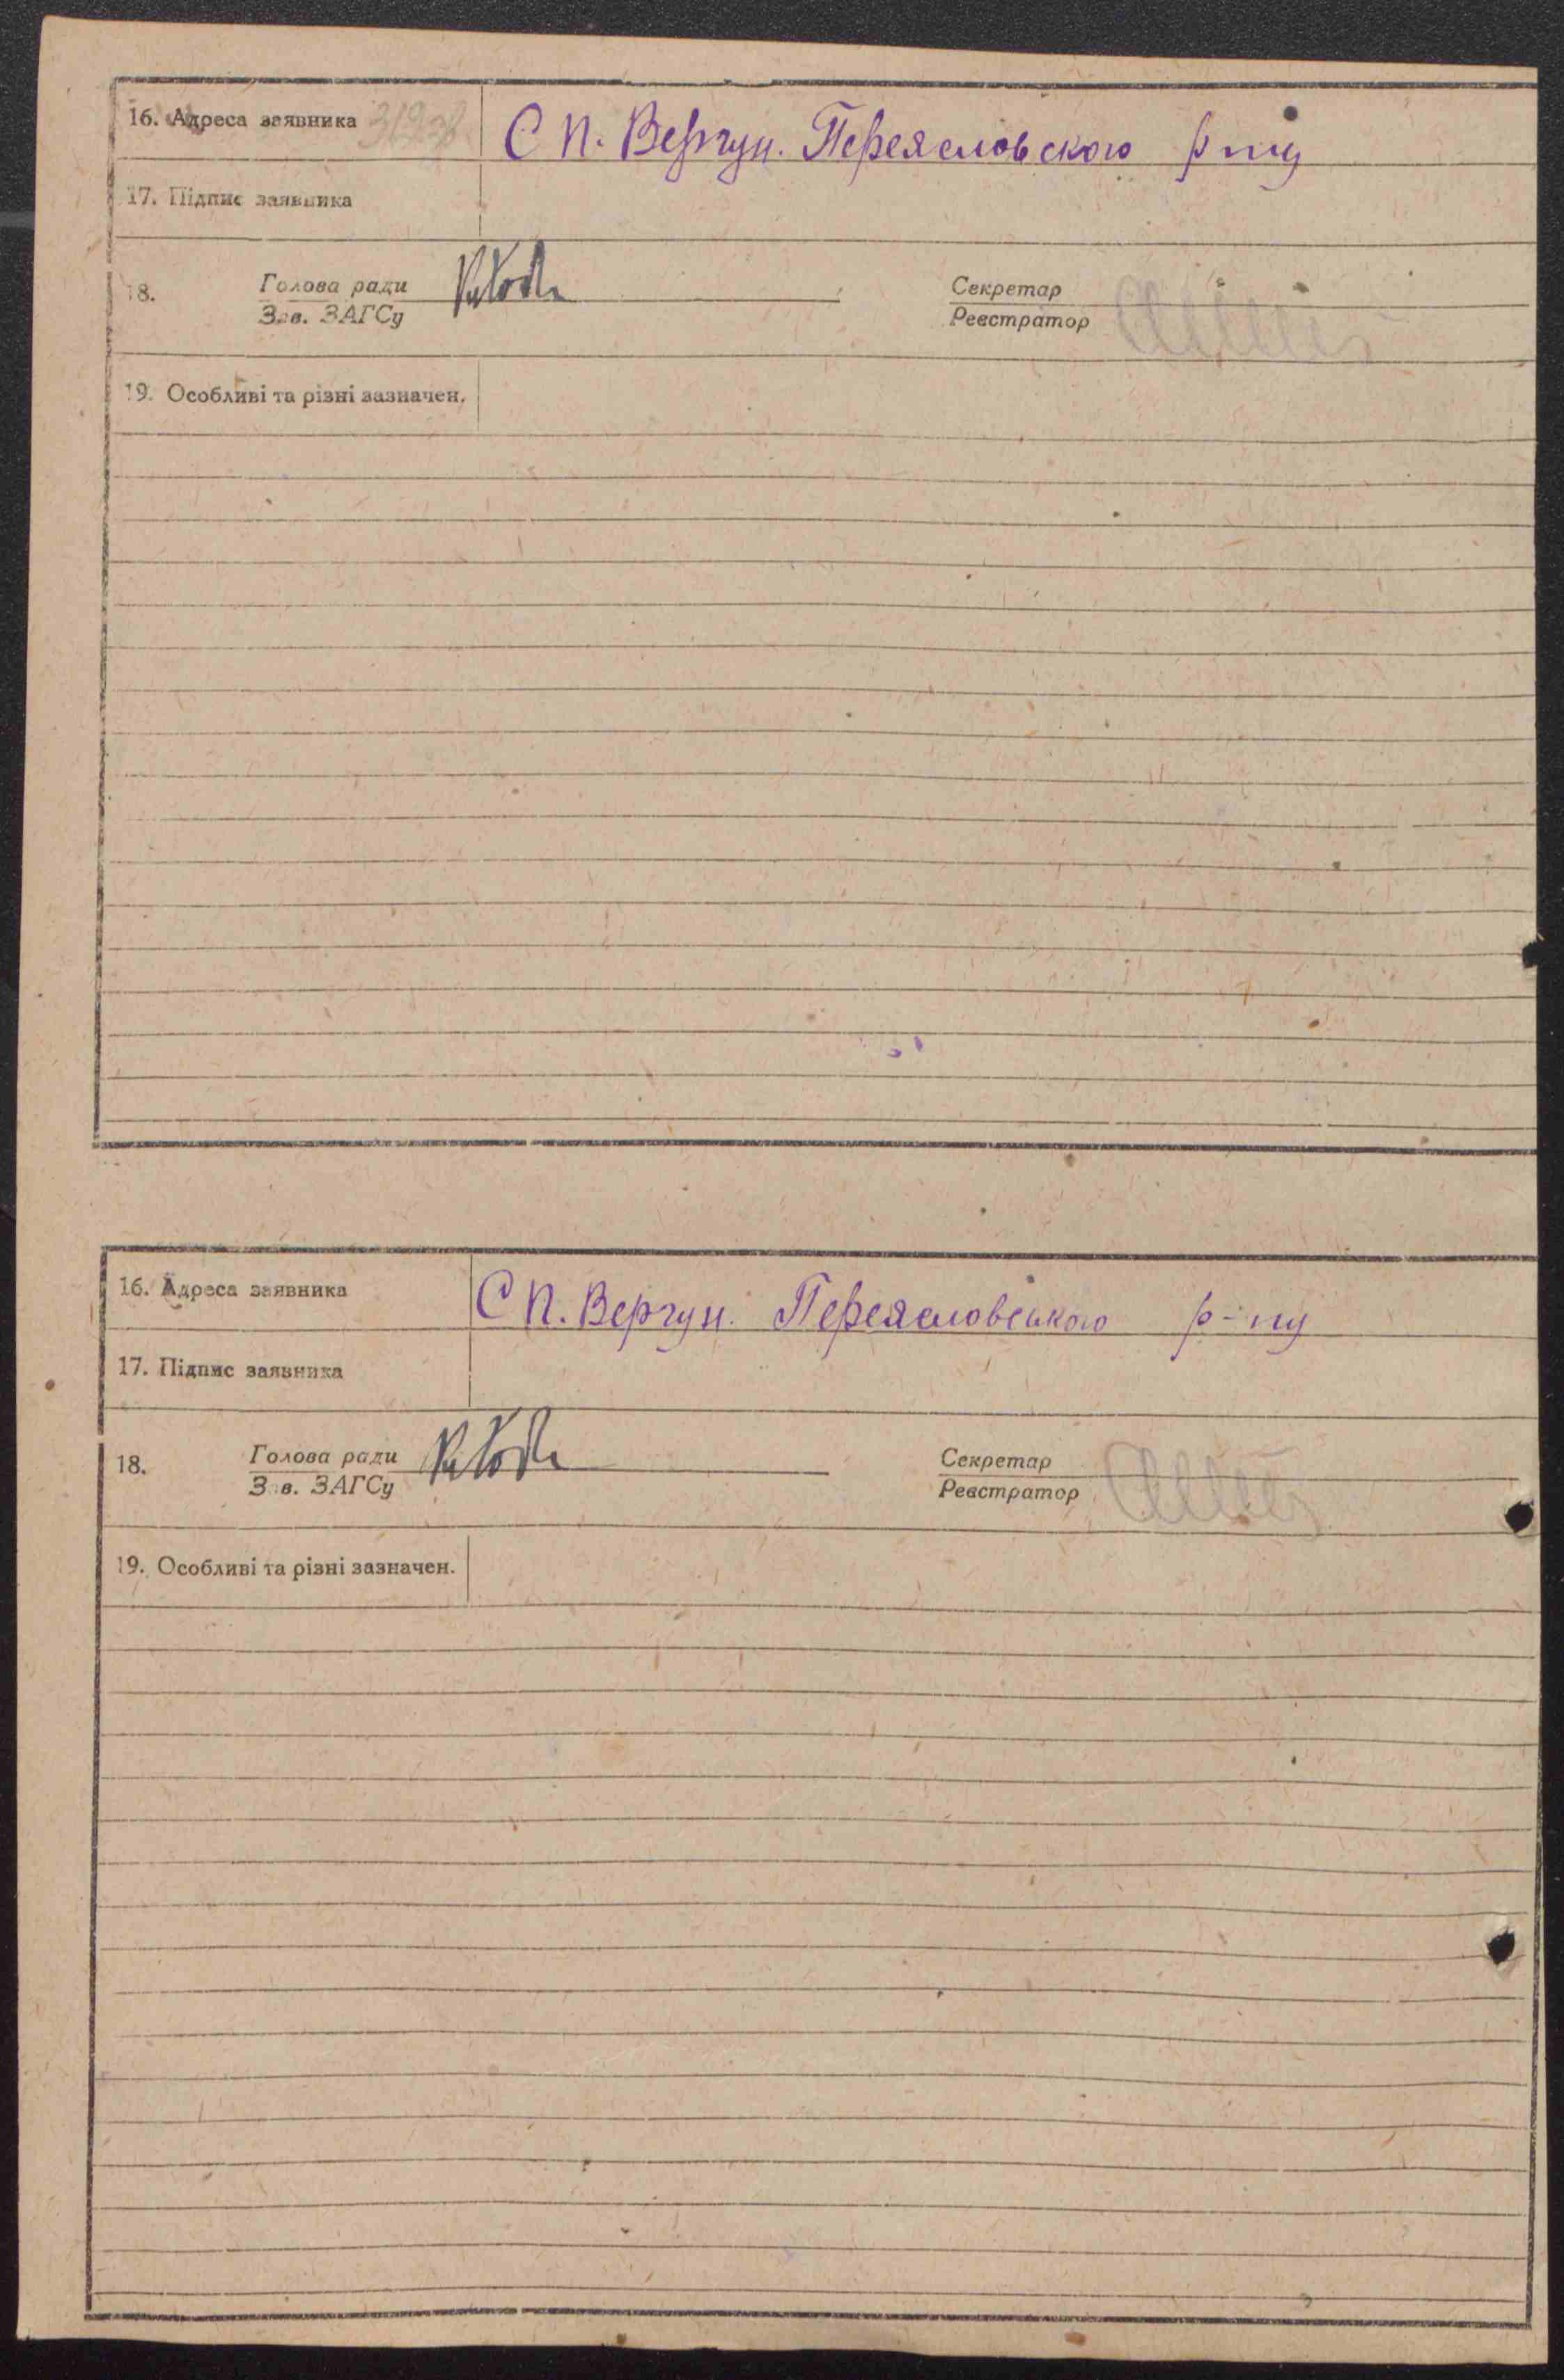 16. Адреса заявника С П. Вергун. Переясловского р-ну
17. Підпис заявника
18. Голова ради Секретар
Зав. ЗАГСу Реєстратор
19. Особливі та різні зазначен.
16. Адреса заявника С П. Вергун. Переясловського р-ну
17. Підпис заявника
18. Голова ради Секретар
Зав. ЗАГСу Реєстратор
19. Особливі та різні зазначен.